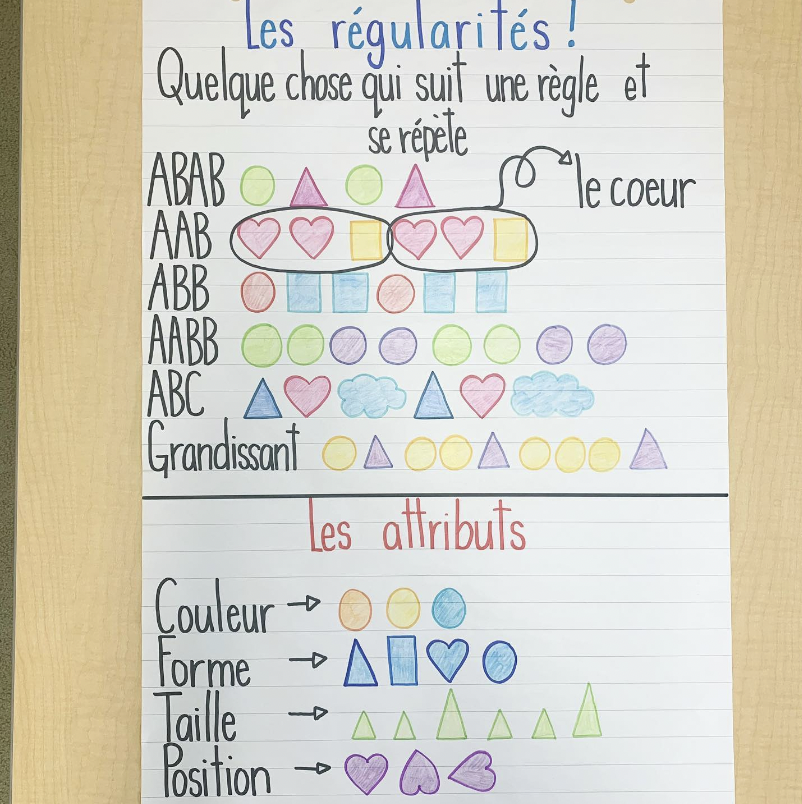 Les régularités!
Quelque chose qui suit une règle et
se répète
ABAB
le coeur
AAB
ABB
AABB
ABC
Grandissant
Les attributs
Couleur →
Forme →
Taille →
Position →